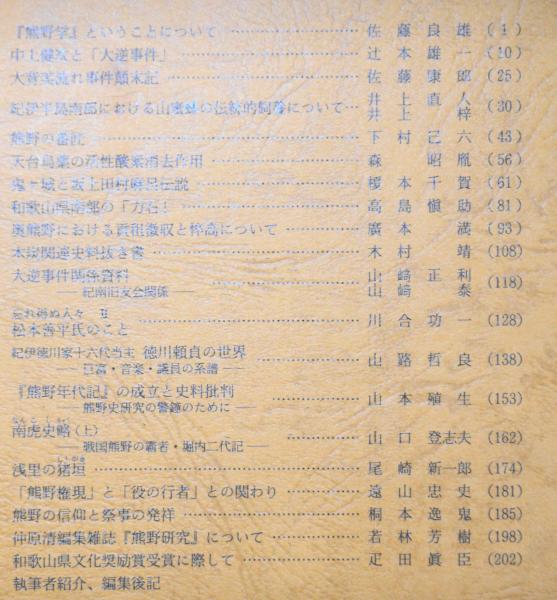 『熊野学』ということについて 佐藤良雄 (4)
中上健次と「大逆事件」 辻本雄一 (10)
大賀流れ事件顛末記 佐藤康郎 (25)
紀伊半島南部における山蜜蜂の伝統的飼養について 井上直人 井上梓 (30)
熊野の番匠 下村己六 (43)
天台烏薬の活性酸素消去作用 森昭胤 (56)
鬼ヶ城と坂上田村麻呂伝説 榎本千賀 (61)
和歌山県南部の「力石」 高島愼助 (81)
奥熊野における貢租徴収と桝高について 廣本満 (93)
本宮関連史料抜き書 木村靖 (108)
大逆事件関係資料 ―紀南旧友会関係― 山﨑正利 山﨑泰 (118)
忘れ得ぬ人々
松本善平氏のこと 川合功一 (128)
紀伊徳川家十六代当主 徳川頼貞の世界 山路哲良 (138)
―巨富・音楽・議員の系譜―
『熊野年代記』の成立と史料批判 山本殖生 (153)
―熊野史研究の警鐘のために―
南虎史略(上) 山口登志夫 (162)
―戦国熊野の覇者・堀内二代記―
浅里の猪垣 尾崎新一郎 (174)
「熊野権現」と「役の行者」との関わり 遠山忠史 (181)
熊野の信仰と祭事の発祥 桐本逸鬼 (185)
仲原清編集雑誌『熊野研究』について 若林芳樹 (198)
和歌山県文化奨励賞受賞に際して 疋田眞臣 (202)
執筆者紹介、編集後記